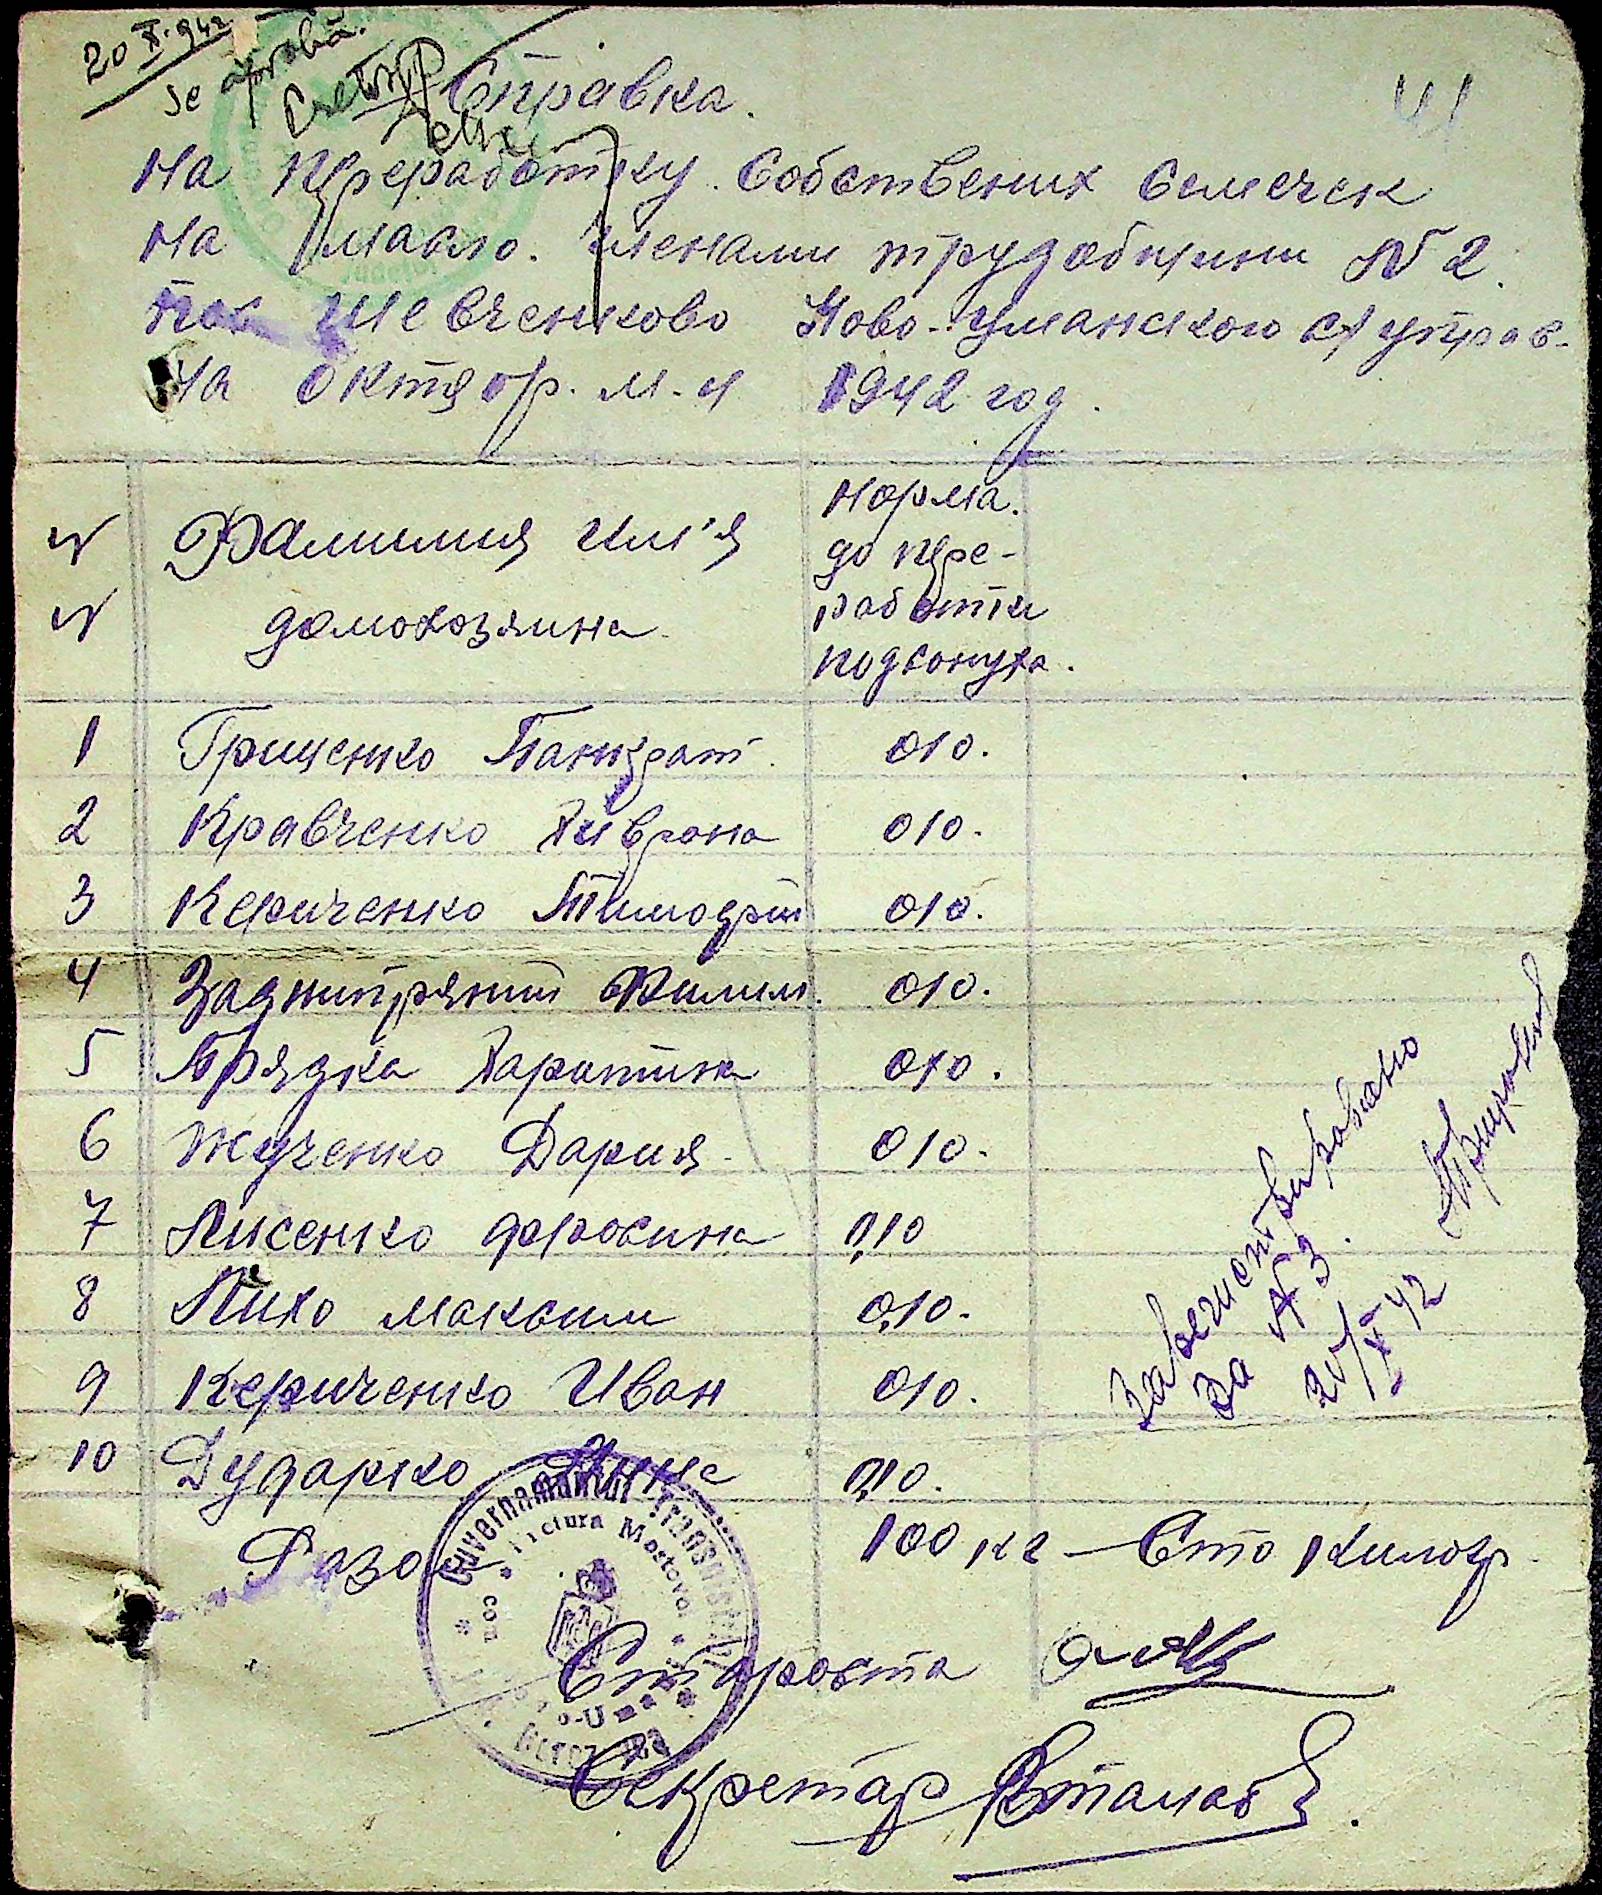 20 X. 942
se aprobă.
Справка.
41
На переработку собствених семечек
на масло. членами трудобщини N 2.
пос Шевченково Ново-Уманского с/управ-
на Октябр. м-ц 1942 год.
N Фамилия им'я
N домохозяина.
Норма. до пере- работки подсонуха.
1 Грищенко Панкрат. 010.
2 Кравченко Хиврона 010.
3 Кериченко Тимофий 010.
4 Заднипряний Филим. 010.
5 Прядка Харитина 010.
6 Жученко Дария. 010.
7 Лисенко Фросина 0,10
8 Лихо Максим 0,10.
9 Кериченко Иван 010.
10 Дударко Анна 0,10.
Разом 100 кг — Сто килогр.
Зарегистрировано
за N 3.
20/X 42
Guvernamantul Transnistriei
Mostovoi
Староста
Секретар